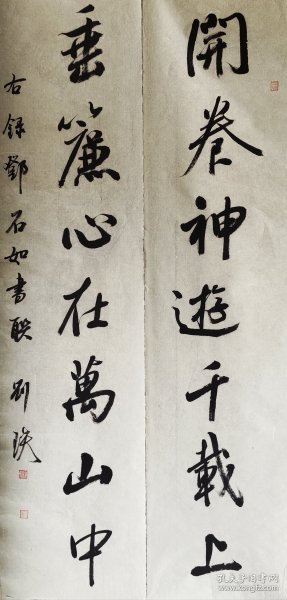 開卷神遊千載上
垂簾心在萬山中
右録鄧石如書联
孔夫子旧书网
www.kongfz.com